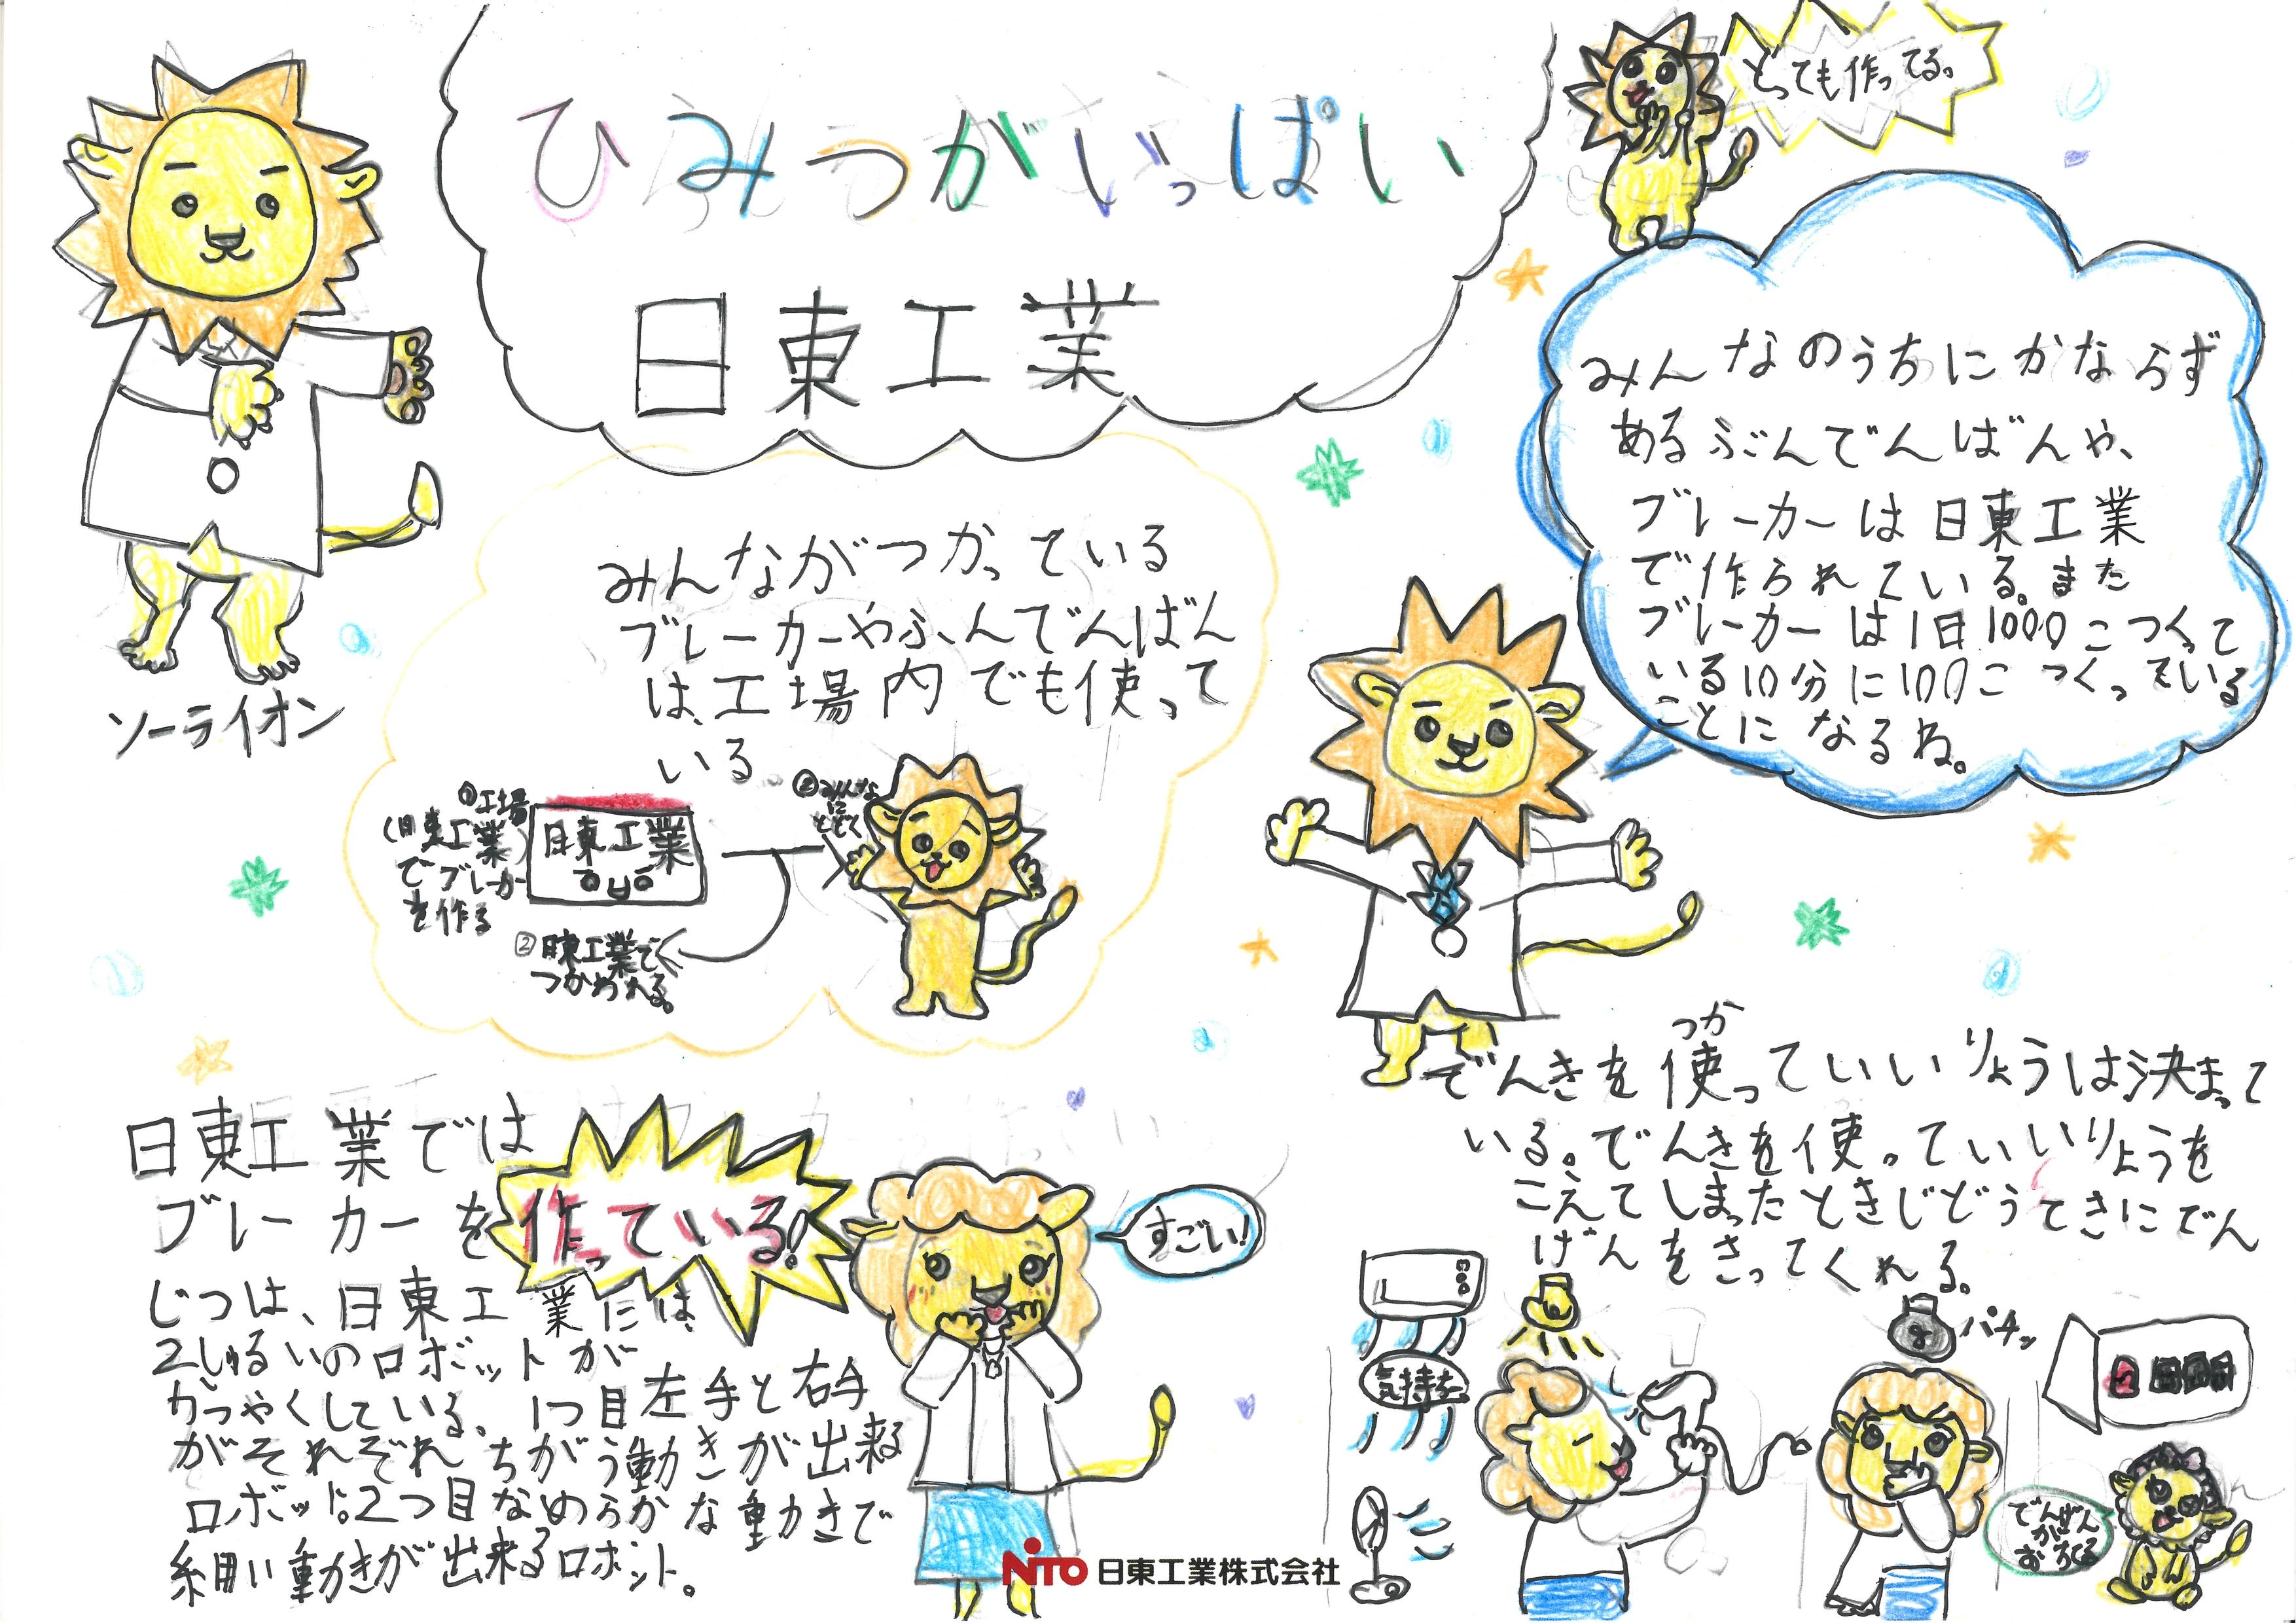 ひみつがいっぱい
日東工業
とっても作ってる。
ソーライオン
みんなのうちにかならず
あるぶんでんばんや、
ブレーカーは日東工業
で作られている。また
ブレーカーは1日1000こつくって
いる10分に100こつくっている
ことになるね。
みんながつかっている
ブレーカーやぶんでんばん
は、工場内でも使って
いる
①工場
(日東工業)
でブレーカー
を作る
日東工業
②日東工業で
つかわれる。
③みんな
に
とどく
日東工業では
ブレーカーを作っている!
すごい!
じつは、日東工業には、
2しゅるいのロボットが
かつやくしている。1つ目左手と右手
がそれぞれちがう動きが出来る
ロボット。2つ目なめらかな動きで
細い動きが出来るロボット。
つか
でんきを使っていいりょうは決まって
いる。でんきを使っていいりょうを
こえてしまったときじどうてきにでん
げんをきってくれる。
気持を
パチッ
でんげん
が
おちてる
NITO 日東工業株式会社